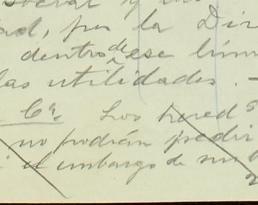 social y
dad, por la Dir
dentro de ese lím
las utilidades. –
6ª. Los hered
no podrán pedir
el embargo de sus